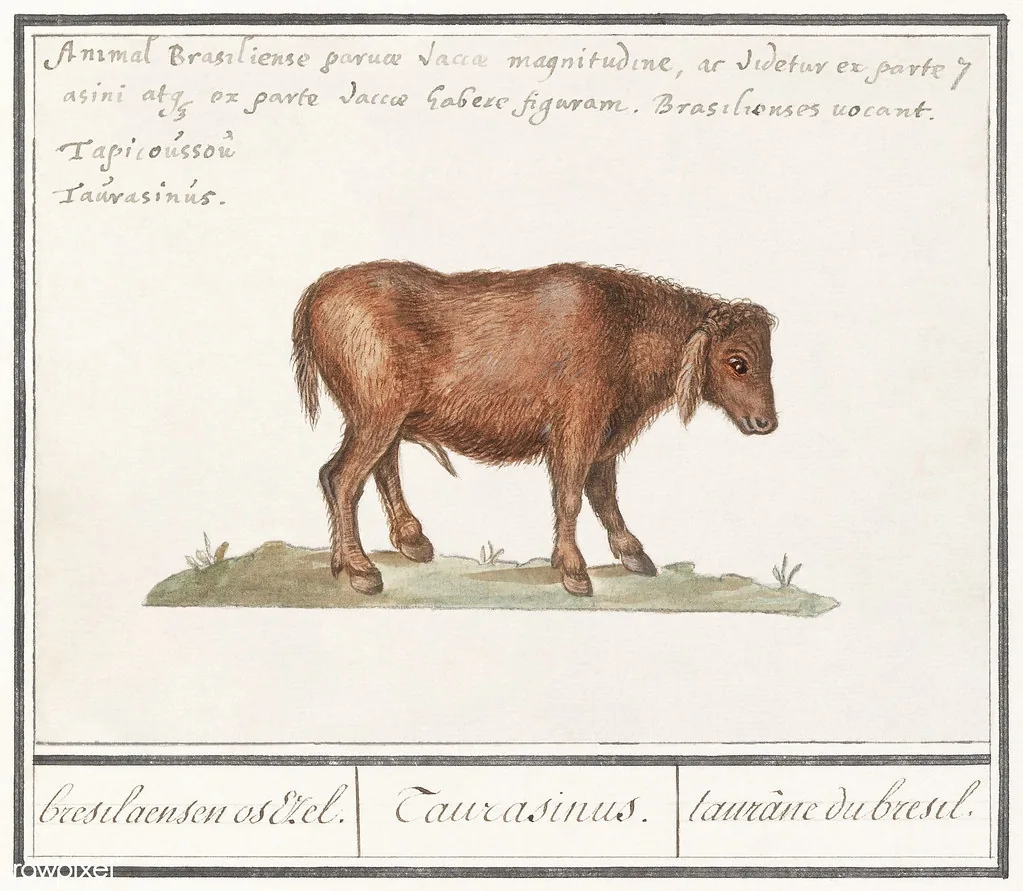 Animal Brasiliense paruæ vaccæ magnitudine, ac videtur ex parte
asini atqꝫ ex parte vaccæ habere figuram. Brasilienses uocant.
Tapicoússoú
Taúrasinús.
bresilaensen os Ezel.
Taurasinus.
taurâne du bresil.
rawpixel